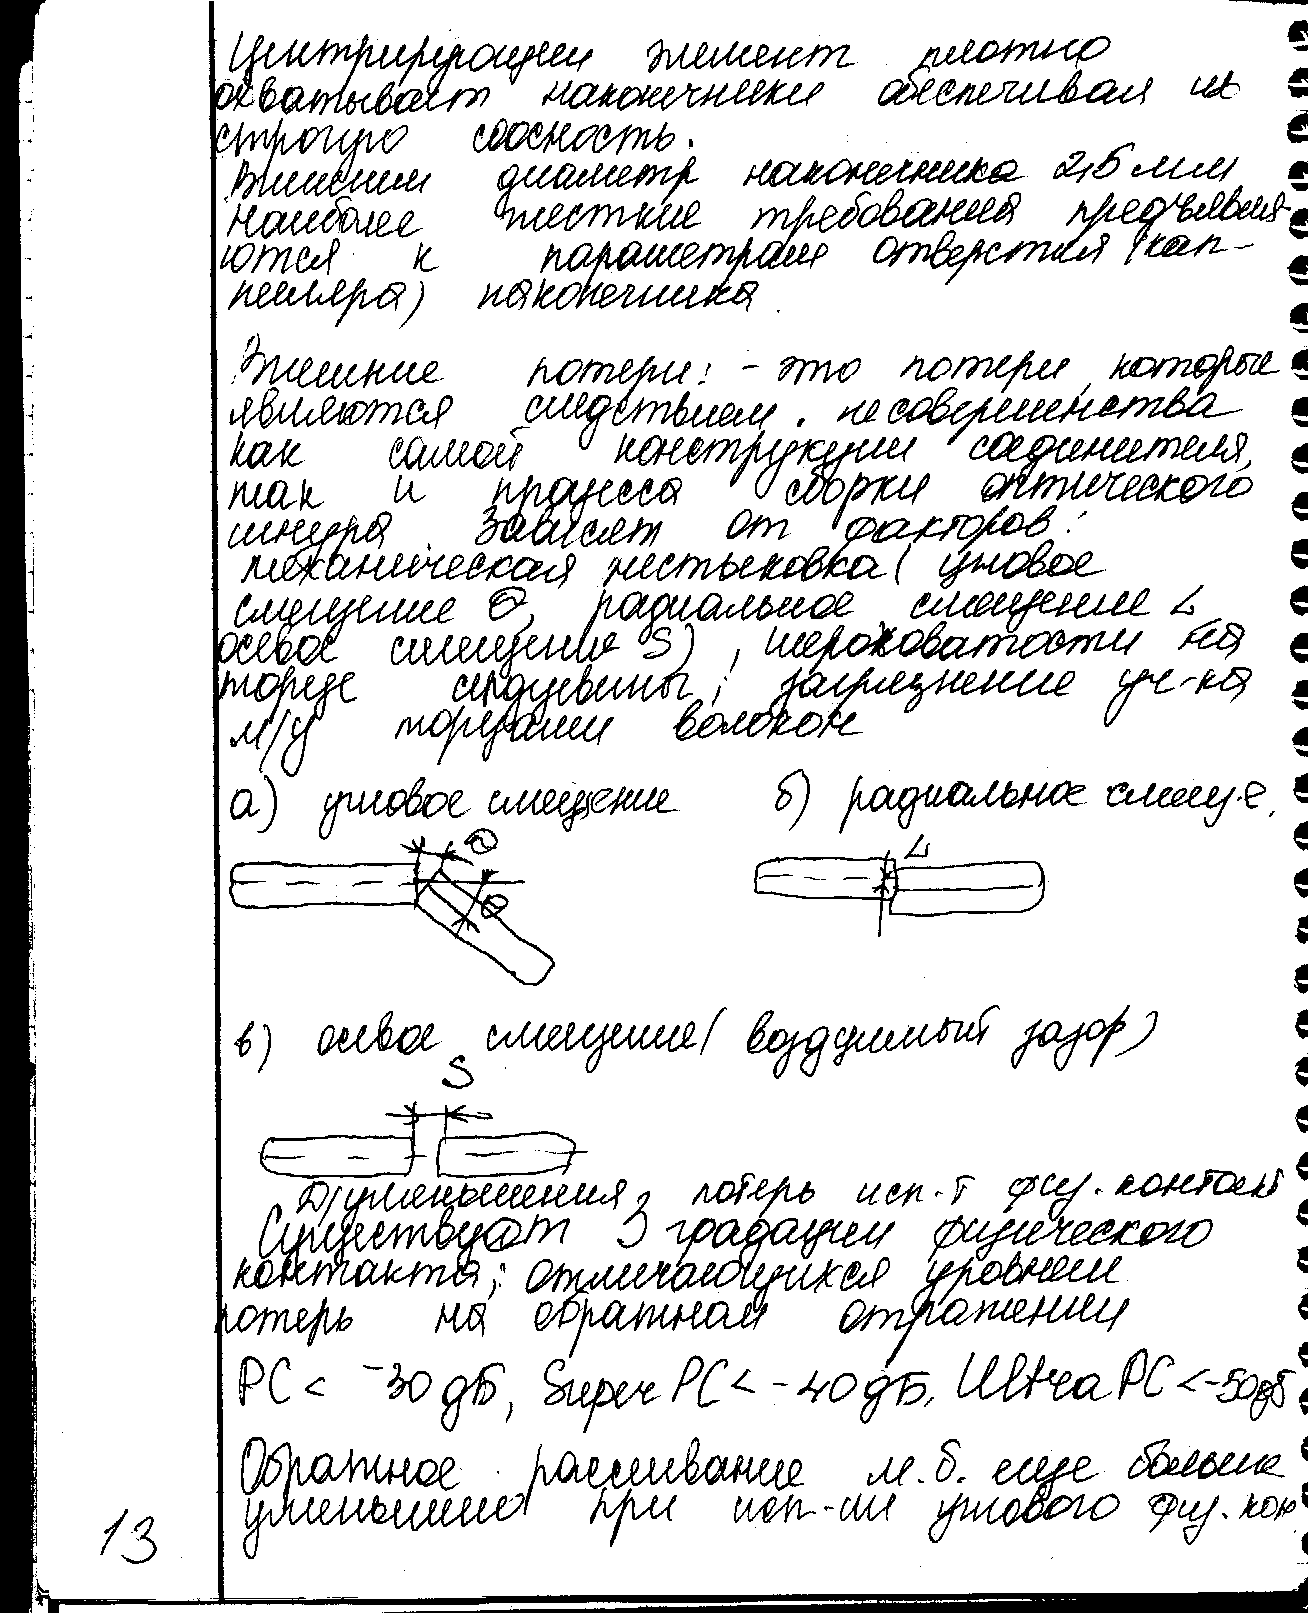 Центрирующий элемент плотно
охватывает наконечники обеспечивая их
строгую соосность.
Внешний диаметр наконечника 2,5 мм
наиболее жесткие требования предъявля-
ются к параметрам отверстия (кап-
пиляра) наконечника.
Внешние потери: - это потери, которые
являются следствием несовершенства
как самой конструкции соединителя,
так и процесса сборки оптического
шнура. Зависят от факторов:
механическая нестыковка (угловое
смещение Θ, радиальное смещение L
осевое смещение S), шероховатости на
торце сердцевины; загрязнение уч-ка
м/у торцами волокон
а) угловое смещение б) радиальное смещ-е.
Θ L
Θ
в) осевое смещение (воздушный зазор)
S
Д/уменьшения потерь исп-т физ. контакт
Существует 3 градации физического
контакта; отличающихся уровнем
потерь на обратном отражении
PC < -30 дБ, Super PC < -40 дБ, Ultra PC < -50 дБ
Обратное рассеивание м.б. еще больше
уменьшено при исп-ии углового физ. кон
13